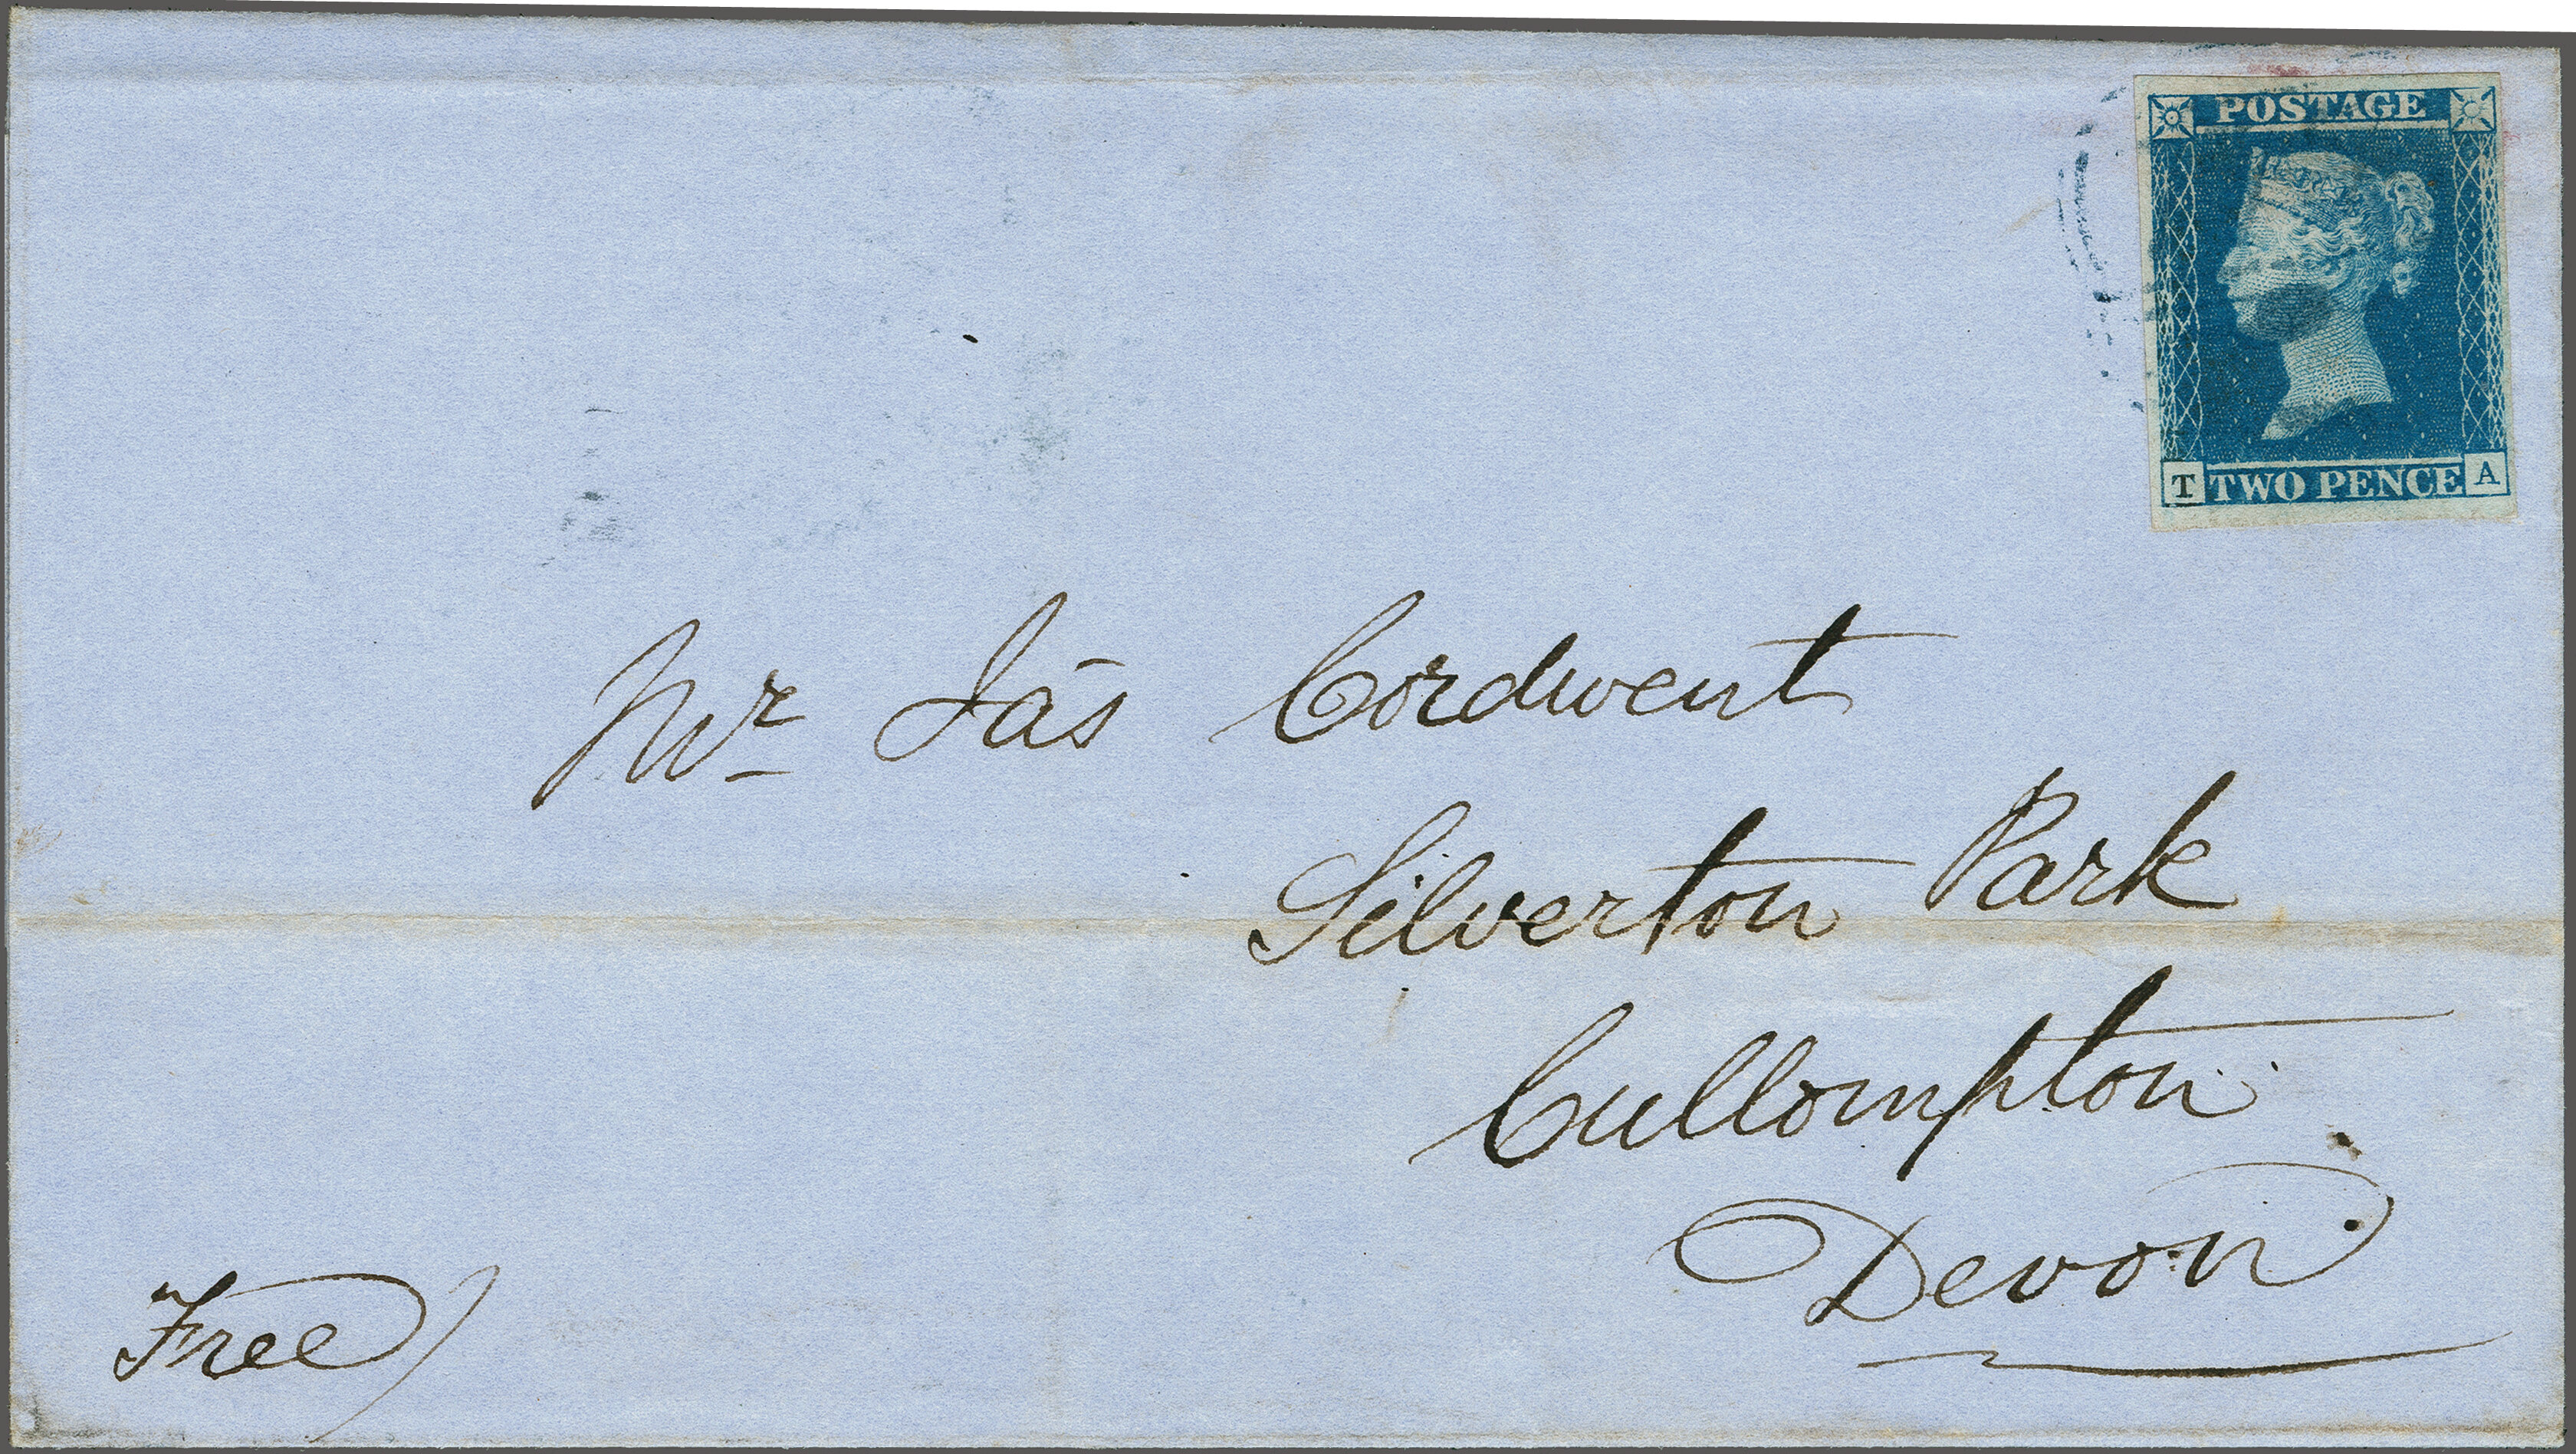 POSTAGE
T TWO PENCE A
Mr Jas Cordwent
Silverton Park
Cullompton
Devon
Free